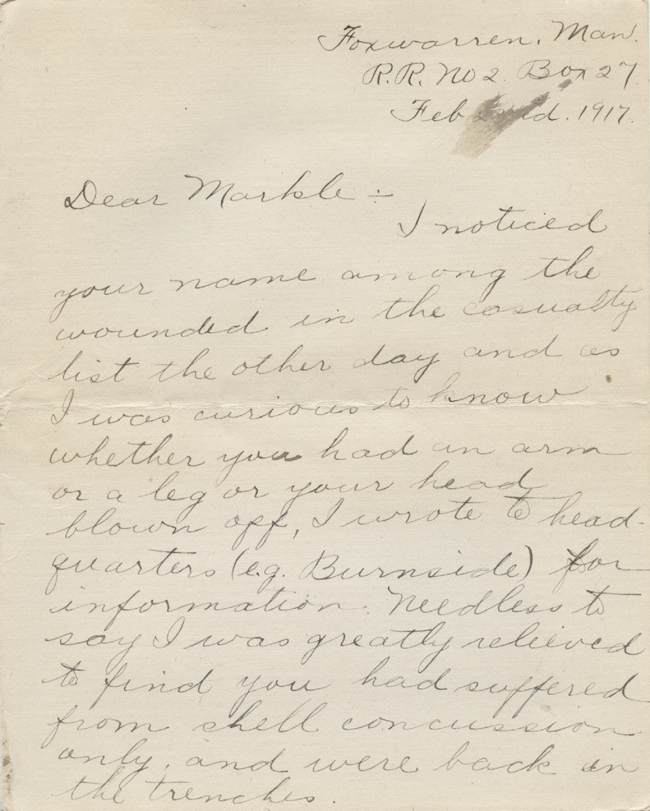 Foxwarren, Man.
R.R. No 2 Box 27
Feb 1917.
Dear Markle :-
I noticed
your name among the
wounded in the casualty
list the other day and as
I was curious to know
whether you had an arm
or a leg or your head
blown off, I wrote to head-
quarters (e.g. Burnside) for
information. Needless to
say I was greatly relieved
to find you had suffered
from shell concussion
only, and were back in
the trenches.